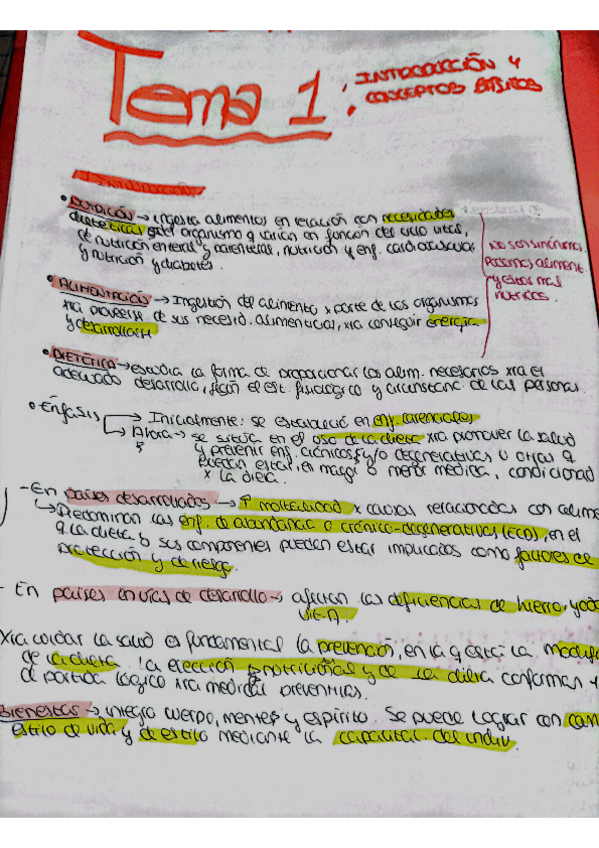 Tema 1: INTRODUCCIÓN Y
CONCEPTOS BÁSICOS
• NUTRICIÓN → ingesta alimentos en relación con necesidades
dietéticas del organismo y varían en función del ciclo vital,
de nutrición enteral y parenteral, nutrición y enf. cardiovascular
y nutrición y diabetes.
No son sinónimos
Podemos aliment.
y estar mal
nutridos.
• ALIMENTACIÓN → Ingestión del alimento x parte de los organismos
xra proveerse de sus necesid. alimenticias, xra conseguir energía
y desarrollarse
• DIETÉTICA → estudia la forma de proporcionar los alim. necesarios xra el
adecuado desarrollo, según el est. fisiológico y circunstanc. de las personas.
• Énfasis → Inicialmente: se estableció en enf. carenciales
→ Ahora → se sitúa en el uso de la dieta xra promover la salud
y prevenir enf. crónicas y/o degenerativas u otras q
puedan estar, en mayor o menor medida, condicionad
x la dieta.
- En países desarrollados → ↑ mortalidad x causas relacionadas con alime
↳ Predominan las enf. de abundancia o crónico-degenerativas (ECD), en el
q la dieta y sus componentes pueden estar implicados como factores de
protección y de riesgo.
- En países en vías de desarrollo → afectan las deficiencias de hierro, yodo
vit. A.
Xra cuidar la salud es fundamental la prevención, en la q está la modif
de la dieta. la elección nutricional y de la dieta conforman
de partida lógico xra medidas preventivas.
Bienestar → integra cuerpo, mente y espíritu. Se puede lograr con cam
estilo de vida y de estilo mediante la capacitac. del indiv.